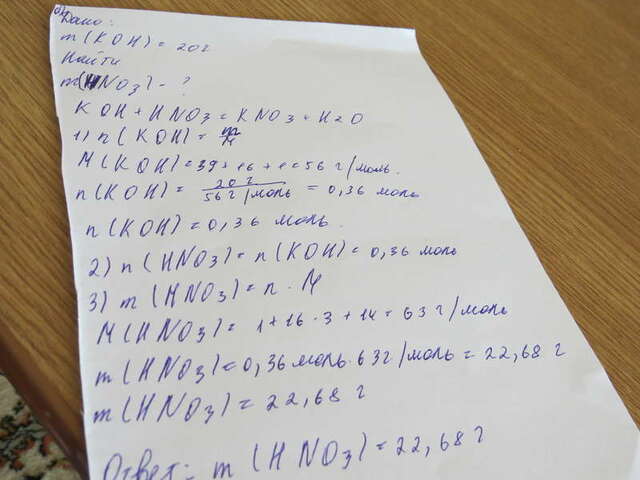 Дано:
m(KOH) = 20г
Найти
m(HNO3) - ?
KOH + HNO3 = KNO3 + H2O
1) n(KOH) = m/M
M(KOH) = 39 + 16 + 1 = 56 г/моль.
n(KOH) = 20 г / 56 г/моль = 0,36 моль
n(KOH) = 0,36 моль.
2) n(HNO3) = n(KOH) = 0,36 моль
3) m(HNO3) = n · M
M(HNO3) = 1 + 16 · 3 + 14 = 63 г/моль
m(HNO3) = 0,36 моль · 63 г/моль = 22,68 г
m(HNO3) = 22,68 г
Ответ: m(HNO3) = 22,68 г